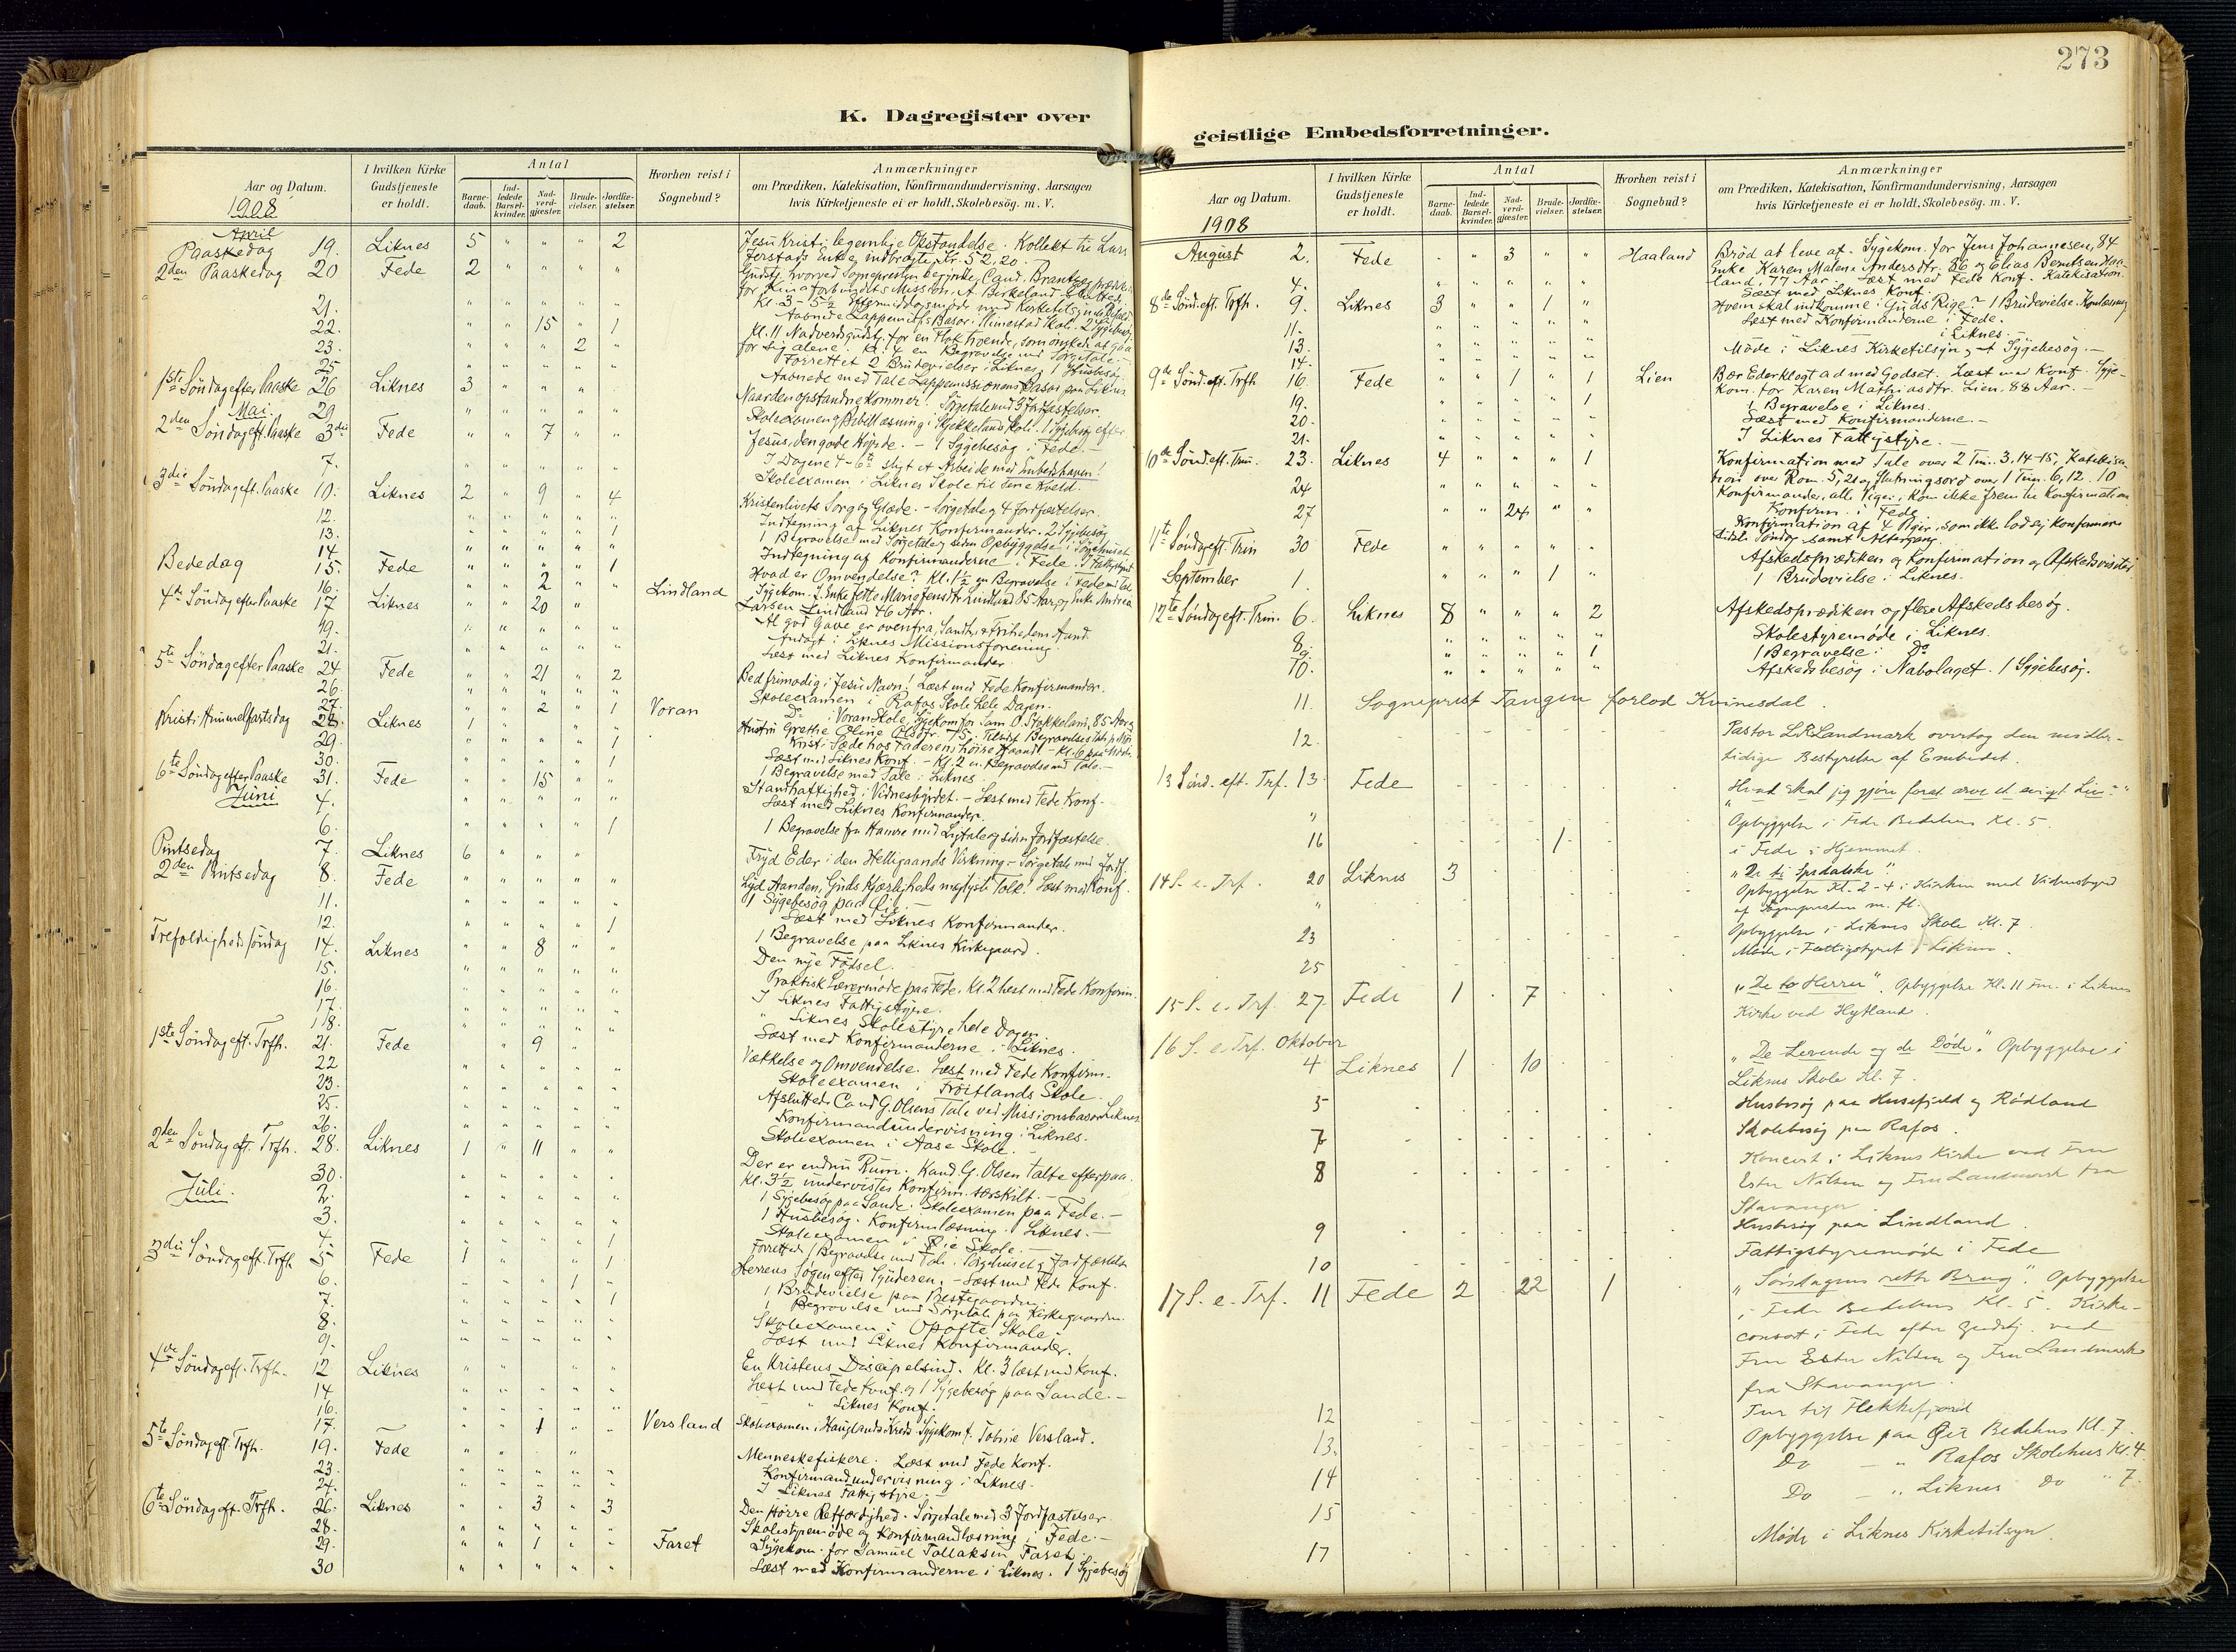 273
K. Dagregister over
geistlige Embedsforretninger.
Aar og Datum.
I hvilken Kirke Gudstjeneste er holdt.
Antal
Barne-daab.
Ind-ledede Barsel-kvinder.
Nad-verd-gjæster.
Brude-vielser.
Jordfæ-stelser.
Hvorhen reist i Sognebud?
Anmærkninger
om Prædiken, Katekisation, Konfirmandundervisning, Aarsagen
hvis Kirketjeneste ei er holdt, Skolebesög. m. V.
1908
April
Paaskedag 19. Liknes 5 " " " 2 Jesu Kristi legemlige Opstandelse. Kollekt til Lars
2den Paaskedag 20 Fede 2 " " " "
21. " " " " "
22. " " 15 " 1
23. " " " 2 " for sig alene. Kl. 4 en Begravelse med Sørgetale.
25 " " " " " Forrettet 2 Brudevielser i Liknes, 1 Husbesøg.
1ste Søndag efter Paaske 26 Liknes 3 " " " "
Mai. 29 " " " " "
2den Søndag eft. Paaske 3die Fede " " 7 " " Jesus, den gode Hyrde. - 1 Sygebesøg i Fede.
7. " " " " " Skoleexamen i Liknes Skole til sene Kveld.
3die Søndag eft. Paaske 10. Liknes 2 " 9 " 4 Kristenlivets Sorg og Glæde. - Sørgetale og 4 Jordfæstelser.
12. " " " " " Indtegning af Liknes Konfirmander. 2 Sygebesøg
13. " " " " 1 1 Begravelse med Sørgetale og siden Opbyggelse i Sørgehuset
14. " " " " " Indtegning af Konfirmanderne i Fede.
Bededag 15. Fede " " " " 1 Hvad er Omvendelse? Kl. 1½ en Begravelse i Fede med Tale
16. " " 2 " " Lindland
4de Søndag efter Paaske 17 Liknes " " 20 " " Larsen Lindland 46 Aar.
Al god Gave er ovenfra, Sandheds & Frihedens Aand.
19. " " " " " Andagt i Liknes Missionsforening.
21. " " " " " Læst med Liknes Konfirmander.
5te Søndag efter Paaske 24 Fede " " 21 " 2 Bed frimodig i Jesu Navn! Læst med Fede Konfirmander.
26. " " " " " Skoleexamen i Rafos Skole hele Dagen.
27. " " 2 " 1 Voran
Kristi Himmelfartsdag 28. Liknes 1 " " " "
29. " " " " 1 Læst med Liknes Konf. - Kl. 2 en Begravelse med Tale.
30. " " " " 1 1 Begravelse med Tale i Liknes.
6te Søndag efter Paaske 31. Fede " " 15 " " Standhaftighed i Vidnesbyrdet. - Læst med Fede Konf.
Juni 4. " " " " " Læst med Liknes Konfirmander.
6. " " " " 1 1 Begravelse fra Hamre med Ligtale og siden Jordfæstelse.
Pintsedag 7. Liknes 6 " " " Fryd Eder i den Helligaands Virkning. - Sørgetale med Jordf.
2den Pintsedag 8. Fede " " " " " Lyd Aanden, Guds Kjærligheds mægtigste Tolk! Læst med Konf.
1 Sygebesøg paa Øie.
11. " " " " " Læst med Liknes Konfirmander.
12. " " " " 1 1 Begravelse paa Liknes Kirkegaard.
Trefoldighedssøndag 14. Liknes " " 8 " " Den nye Fødsel.
15. " " " " " Praktisk Lærermøde paa Fede. Kl. 2 læst med Fede Konfirm.
16. " " " " " I Liknes Fattigstyre.
17. " " " " " " Liknes Skolestyre hele Dagen.
18. " " " " " Læst med Konfirmanderne i Liknes.
1ste Søndag eft. Trfh. 21. Fede " " 9 " Vækkelse og Omvendelse. Læst med Fede Konfirm.
22 " " " " " Skoleexamen i Frøitlands Skole.
23. " " " " " Afsluttede Cand G. Olsens Tale ved Missionsbasar Liknes
25. " " " " " Konfirmandundervisning i Liknes.
26. " " " " " Skoleexamen i Aase Skole.
2den Søndag eft. Trfh. 28. Liknes 1 " 11 " " Der er endnu Rum. Kand. G. Olsen talte efterpaa.
Kl. 3½ undervistes Konfirm. særskilt.
30. " " " " " 1 Sygebesøg paa Sande. Skoleexamen paa Fede.
Juli. 2. " " " " " 1 Husbesøg. Konfirmlæsning i Liknes.
3. " " " " " Skoleexamen i Øie Skole.
4. " " " " 1 Forrettede 1 Begravelse med Tale i Sørgehuset og Jordfæstelse
3die Søndag eft. Trfh 5 Fede 1 " " " 1 Herrens Søgen efter Synderen. - Læst med Fede Konf.
6. " " " 1 " 1 Brudevielse paa Prestegaarden.
7. " " " " 1 1 Begravelse med Sørgetale paa Kirkegaarden.
8. " " " " " Skoleexamen i Opofte Skole.
9. " " " " " Læst med Liknes Konfirmander.
4de Søndag eft. Trfh. 12 Liknes " " " " En Kristens Discipelsind. Kl. 3 læst med Konf.
14 " " " " " Læst med Fede Konf. og 1 Sygebesøg paa Sande.
16. " " " " " " " Liknes Konf.
17. " " 1 " " Versland Skoleexamen i Hauglands Kreds. Sygekom f. Tobine Versland.
5te Søndag eft. Trfh. 19. Fede " " " " Menneskefiskere. Læst med Fede Konf.
23. " " " " " Konfirmandundervisning i Liknes.
24. " " " " " I Liknes Fattigstyre.
6te Søndag eft. Trfh. 26. Liknes " " 3 " 3 Den større Retfærdighed. Sørgetale med 3 Jordfæstelser
28. " " " " " Skolestyremøde og Konfirmandlæsning i Fede.
29. " " 1 " " Faret Sygekom. for Samuel Tollaksen Faret.
30 " " " " " Læst med Konfirmanderne i Liknes. 1 Sygebesøg
Aar og Datum.
I hvilken Kirke Gudstjeneste er holdt.
Antal
Barne-daab.
Ind-ledede Barsel-kvinder.
Nad-verd-gjæster.
Brude-vielser.
Jordfæ-stelser.
Hvorhen reist i Sognebud?
Anmærkninger
om Prædiken, Katekisation, Konfirmandundervisning, Aarsagen
hvis Kirketjeneste ei er holdt, Skolebesög. m. V.
1908
August 2. Fede " " 3 " " Haaland Brød at leve af. Sygekom. for Jens Johannesen, 84
Enke Karen Malene Andersdtr. 86 og Elias Berntsen Haa-
land, 77 Aar. Læst med Fede Konf. Katekisation.
4. " " " " " Læst med Liknes Konf.
8de Sønd. eft. Trfh. 9. Liknes 3 " " 1 " Hvem skal indkomme i Guds Rige? 1 Brudevielse. Konflæsning
11. " " " " " Læst med Konfirmanderne i Fede.
13. " " " " " i Liknes.
14. " " " " " Møde i Liknes Kirketilsyn og et Sygebesøg.
9de Sønd. eft. Trfh 16. Fede " " 1 " 1 Lien Bær Eder klogt ad med Godset. Læst med Konf. Syge-
kom. for Karen Mathiasdtr. Lien, 88 Aar.
19. " " " " 1 1 Begravelse i Liknes.
20. " " " " " Læst med Konfirmanderne.
21. " " " " " I Liknes Fattigstyre.
10de Sønd. eft. Trin. 23. Liknes 4 " " " 1 Konfirmation med Tale over 2 Tim. 3, 14-15, Katekisa-
tion over Rom. 5, 21 og Slutningsord over 1 Tim. 6, 12. 10
24 " " " " " Konfirmander, alle Piger, kom ikke frem til Konfirmation
Konfirm. i Fede
27 " " 24 " " Konfirmation af 4 Piger, som ikke lod sig konfirmere
sidste Søndag samt Altergang.
11te Søndag eft. Trin 30 Fede " " " " " Afskedsprædiken og Konfirmation og Afskedsvisitter
September 1. " " " 1 " 1 Brudevielse i Liknes.
12te Søndag eft. Trin. 6. Liknes 8 " " " 2 Afskedsprædiken og flere Afskedsbesøg.
8. " " " " " Skolestyremøde i Liknes.
9. " " " " 1 1 Begravelse i Do
10. " " " " " Afskedsbesøg i Nabolaget. 1 Sygebesøg.
11. Sogneprest Tangen forlod Kvinesdal.
12. Pastor L.R. Landmark overtog den midler-
tidige Bestyrelse af Embedet.
13 Sønd. eft. Trf. 13 Fede "Hvad skal jeg gjøre foråt arve et evigt Liv?"
" Opbyggelse i Fede Bedehus Kl. 5.
16 1 i Fede i Hjemmet.
14 S. e. Trf. 20 Liknes 3 "De ti Spedalske".
" Opbyggelse Kl. 2-4 i Kirken med Vidnesbyrd
af Sognepresten m. fl.
Opbyggelse i Liknes Skole Kl. 7
23 Møde i Fattigstyret i Liknes.
25
15 S. e. Trf. 27 Fede 1 7 "De to Herrer". Opbyggelse Kl. 11 Fm. i Liknes
Kirke ved Hytland.
16 S. e. Trf. Oktober
4 Liknes 1 10 "De Levende og de Døde." Opbyggelse i
Liknes Skole Kl. 7.
5 Husbesøg paa Husefjeld og Rødland
7 Skolebesøg paa Rafos.
8 Koncert i Liknes Kirke ved Fru
Ester Nilsen og Fru Landmark fra
Stavanger
9 Husbesøg paa Lindland
10 Fattigstyremøde i Fede
17 S. e. Trf. 11 Fede 2 22 1 "Søndagens rette Brug". Opbyggelse
i Fede Bedehus Kl. 5. Kirke-
consert i Fede efter Gudstj. ved
Fru Ester Nilsen og Fru Landmark
fra Stavanger.
12 Tur til Flekkefjord
13. Opbyggelse paa Øie Bedehus Kl. 7.
14 Do - " Rafos Skolehus Kl. 4.
15 Do - " Liknes Do " 7.
17 Møde i Liknes Kirketilsyn